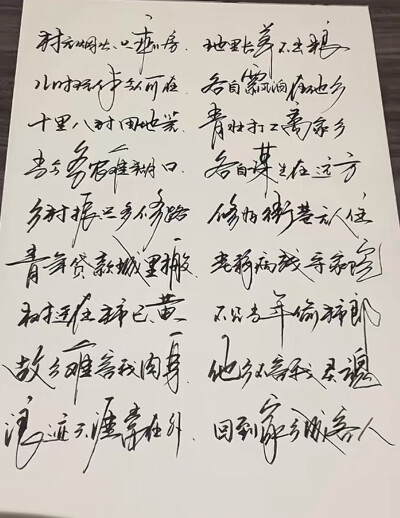 村无烟火只房 地里长草不粮
儿时玩伴今何在 各自飘泊在他乡
十里八村田地荒 青壮打工离家乡
当今务农难糊口 各自谋生在远方
乡村振兴多修路 修好街巷无人住
青年贷款城里搬 老弱病残守家
村柿已黄 不见当年偷柿郎
故乡难容我肉身 他乡不容我灵魂
浪迹天涯常在外 回到家乡成客人